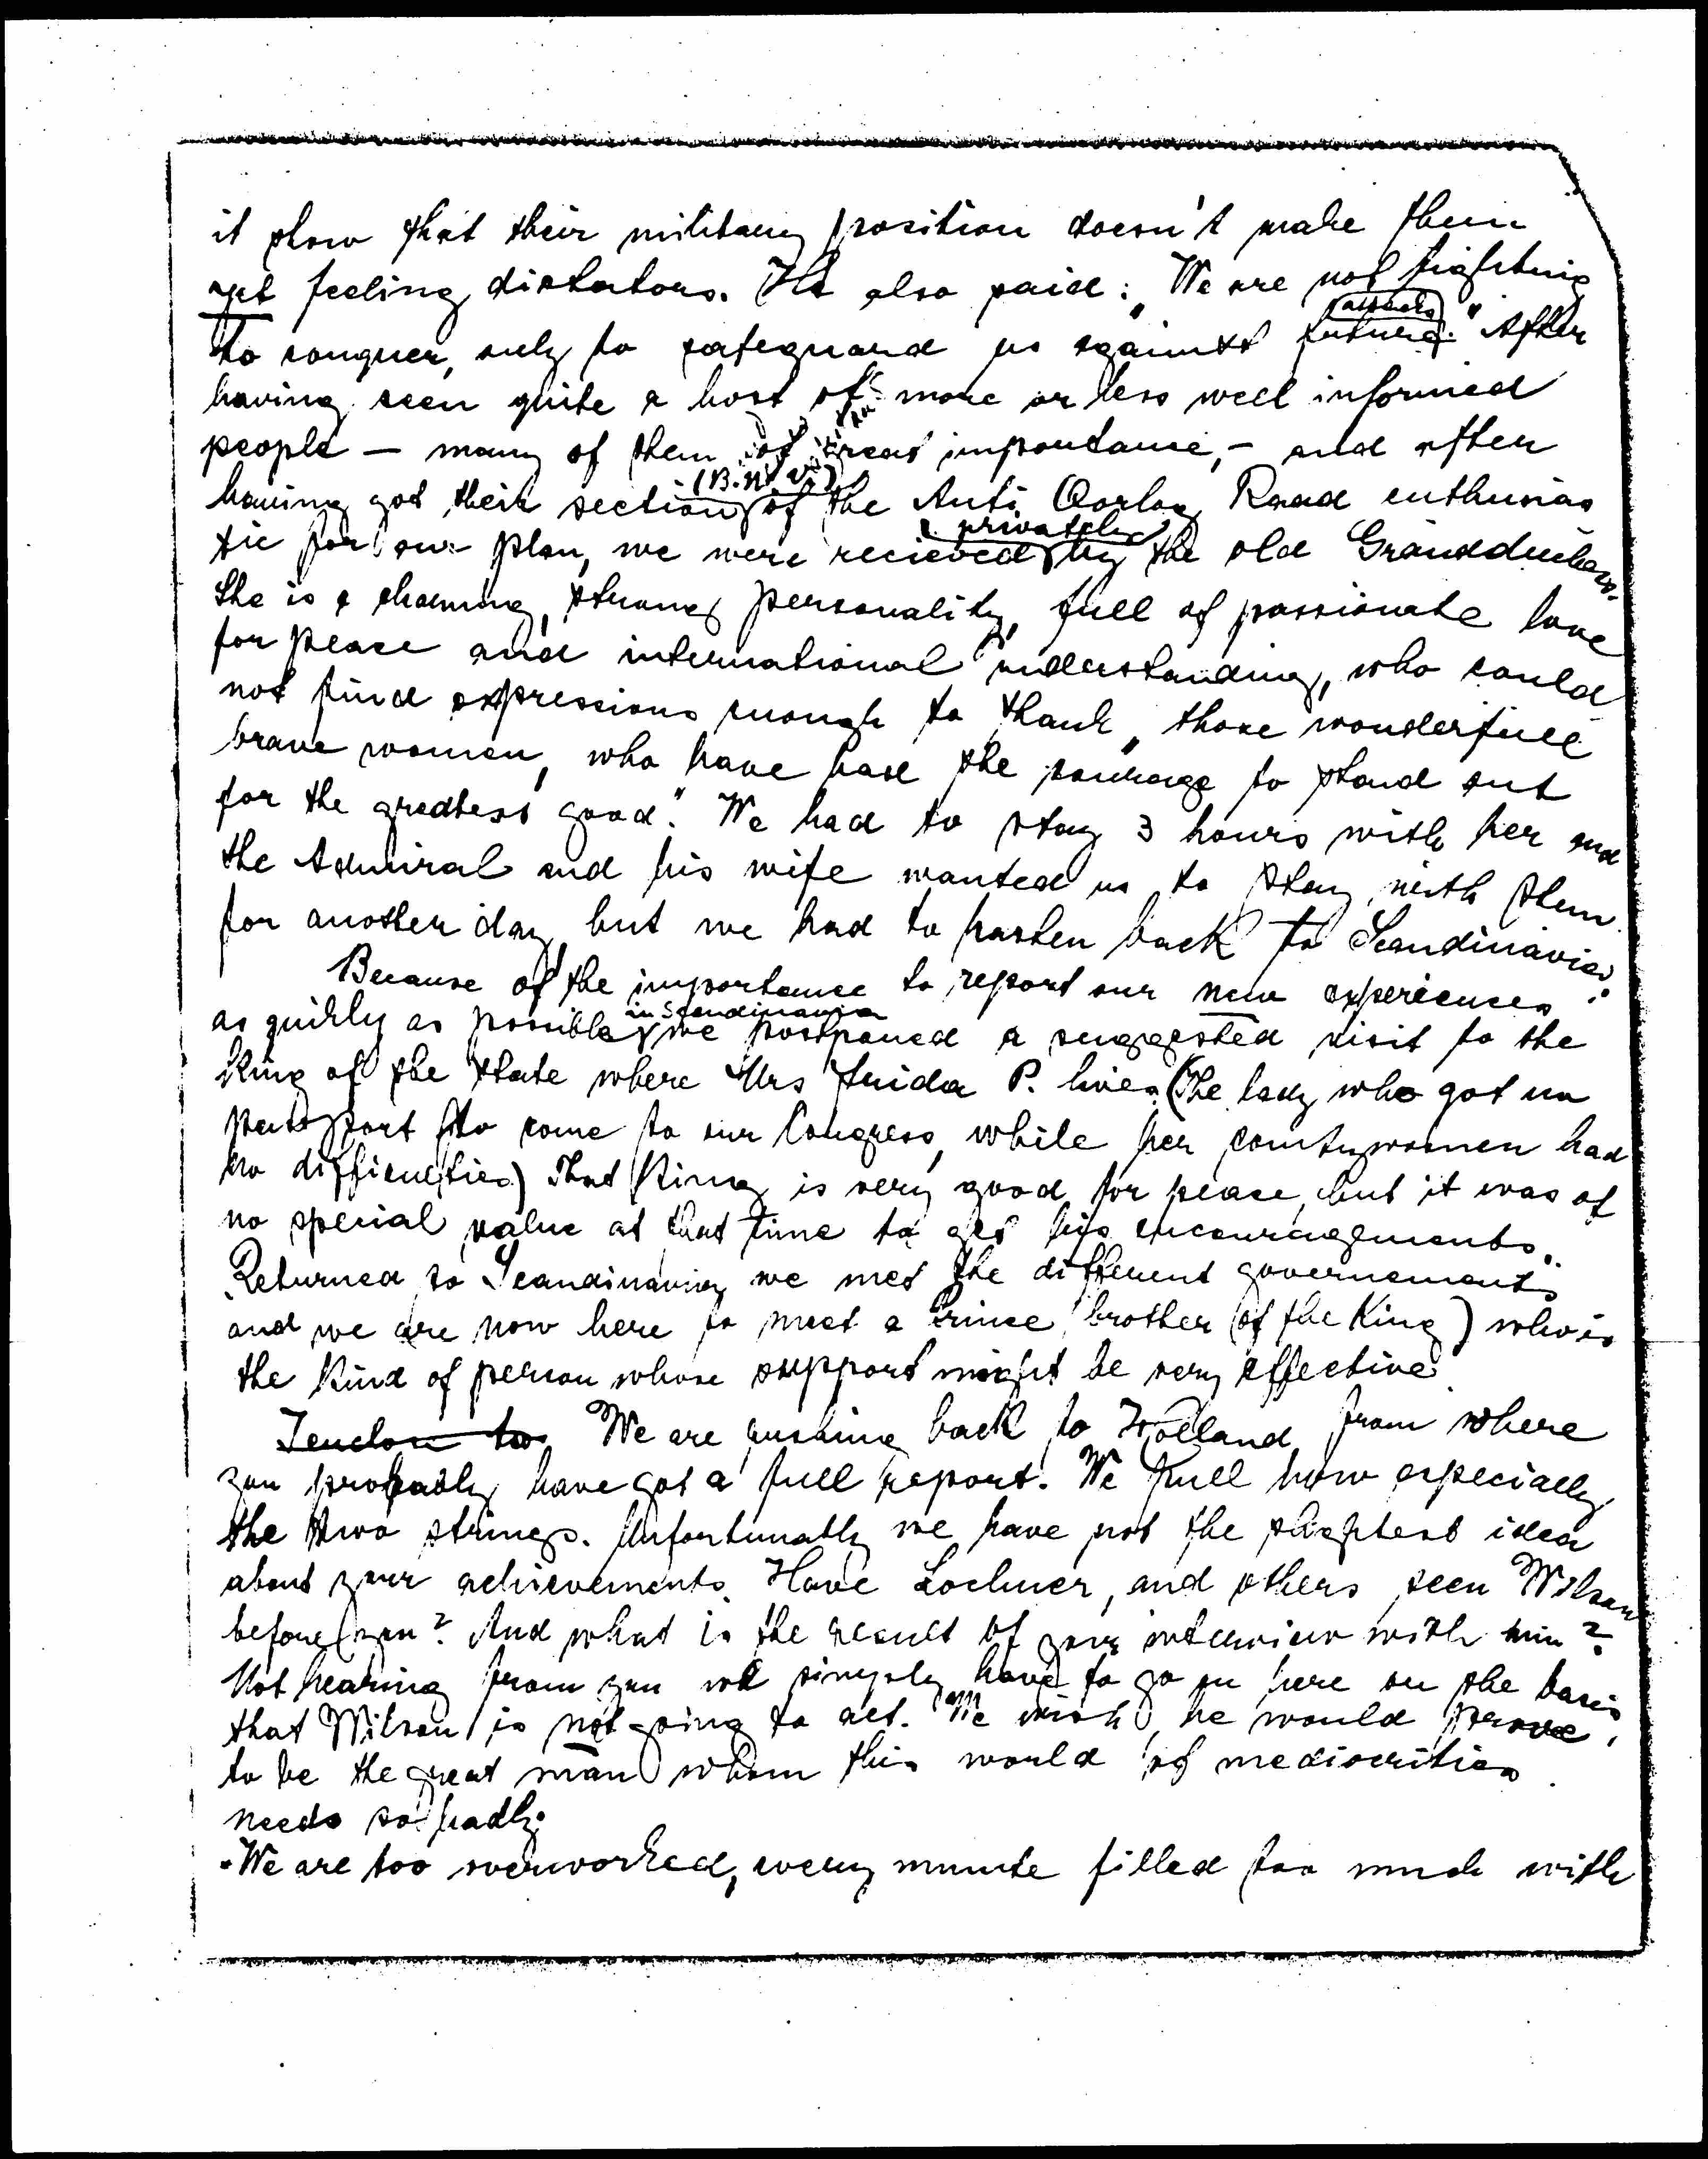 it show that their military position doesn't make them
yet feeling dictators. He also said: "We are not fighting
to conquer, only to safeguard us against future (attacks)." After
having seen quite a host of more or less well informed
people — many of them of great importance, — and after
having got their section (B.N.V.) of the Anti Oorlog Raad enthusias
tic for our plan, we were recieved (privately) by the old Grandduchess.
She is a charming, strong personality, full of passionate love
for peace and international understanding, who could
not find expressions enough to thank "those wonderfull
brave women, who have had the courage to stand out
for the greatest good". We had to stay 3 hours with her and
the Admiral and his wife wanted us to stay with them
for another day, but we had to hasten back to Scandinavia.
Because of the importance to report our new experiences
as quickly as possible in Scandinavia we postponed a suggested visit to the
King of the State where Mrs Frida P. lives. (The lady who got no
passport to come to our Congress, while her countrywomen had
no difficulties) That King is very good for peace, but it was of
no special value at that time to get his encouragements.
Returned to Scandinavia, we met the different governements
and we are now here to meet a Prince (brother of the King) who is
the kind of person whose support might be very effective.
We are rushing back to Holland, from where
you probably have got a full report. We pull now especially
the two strings. Unfortunatly we have not the slightest idea
about your achievements. Have Lochner, and others seen Wilson
before you? And what is the result of your interview with him?
Not hearing from you we simply have to go on here on the basis
that Wilson is not going to act. We wish he would prove,
to be the great man whom this world of mediocrities
needs so badly.
We are too overworked, every minute filled too much with